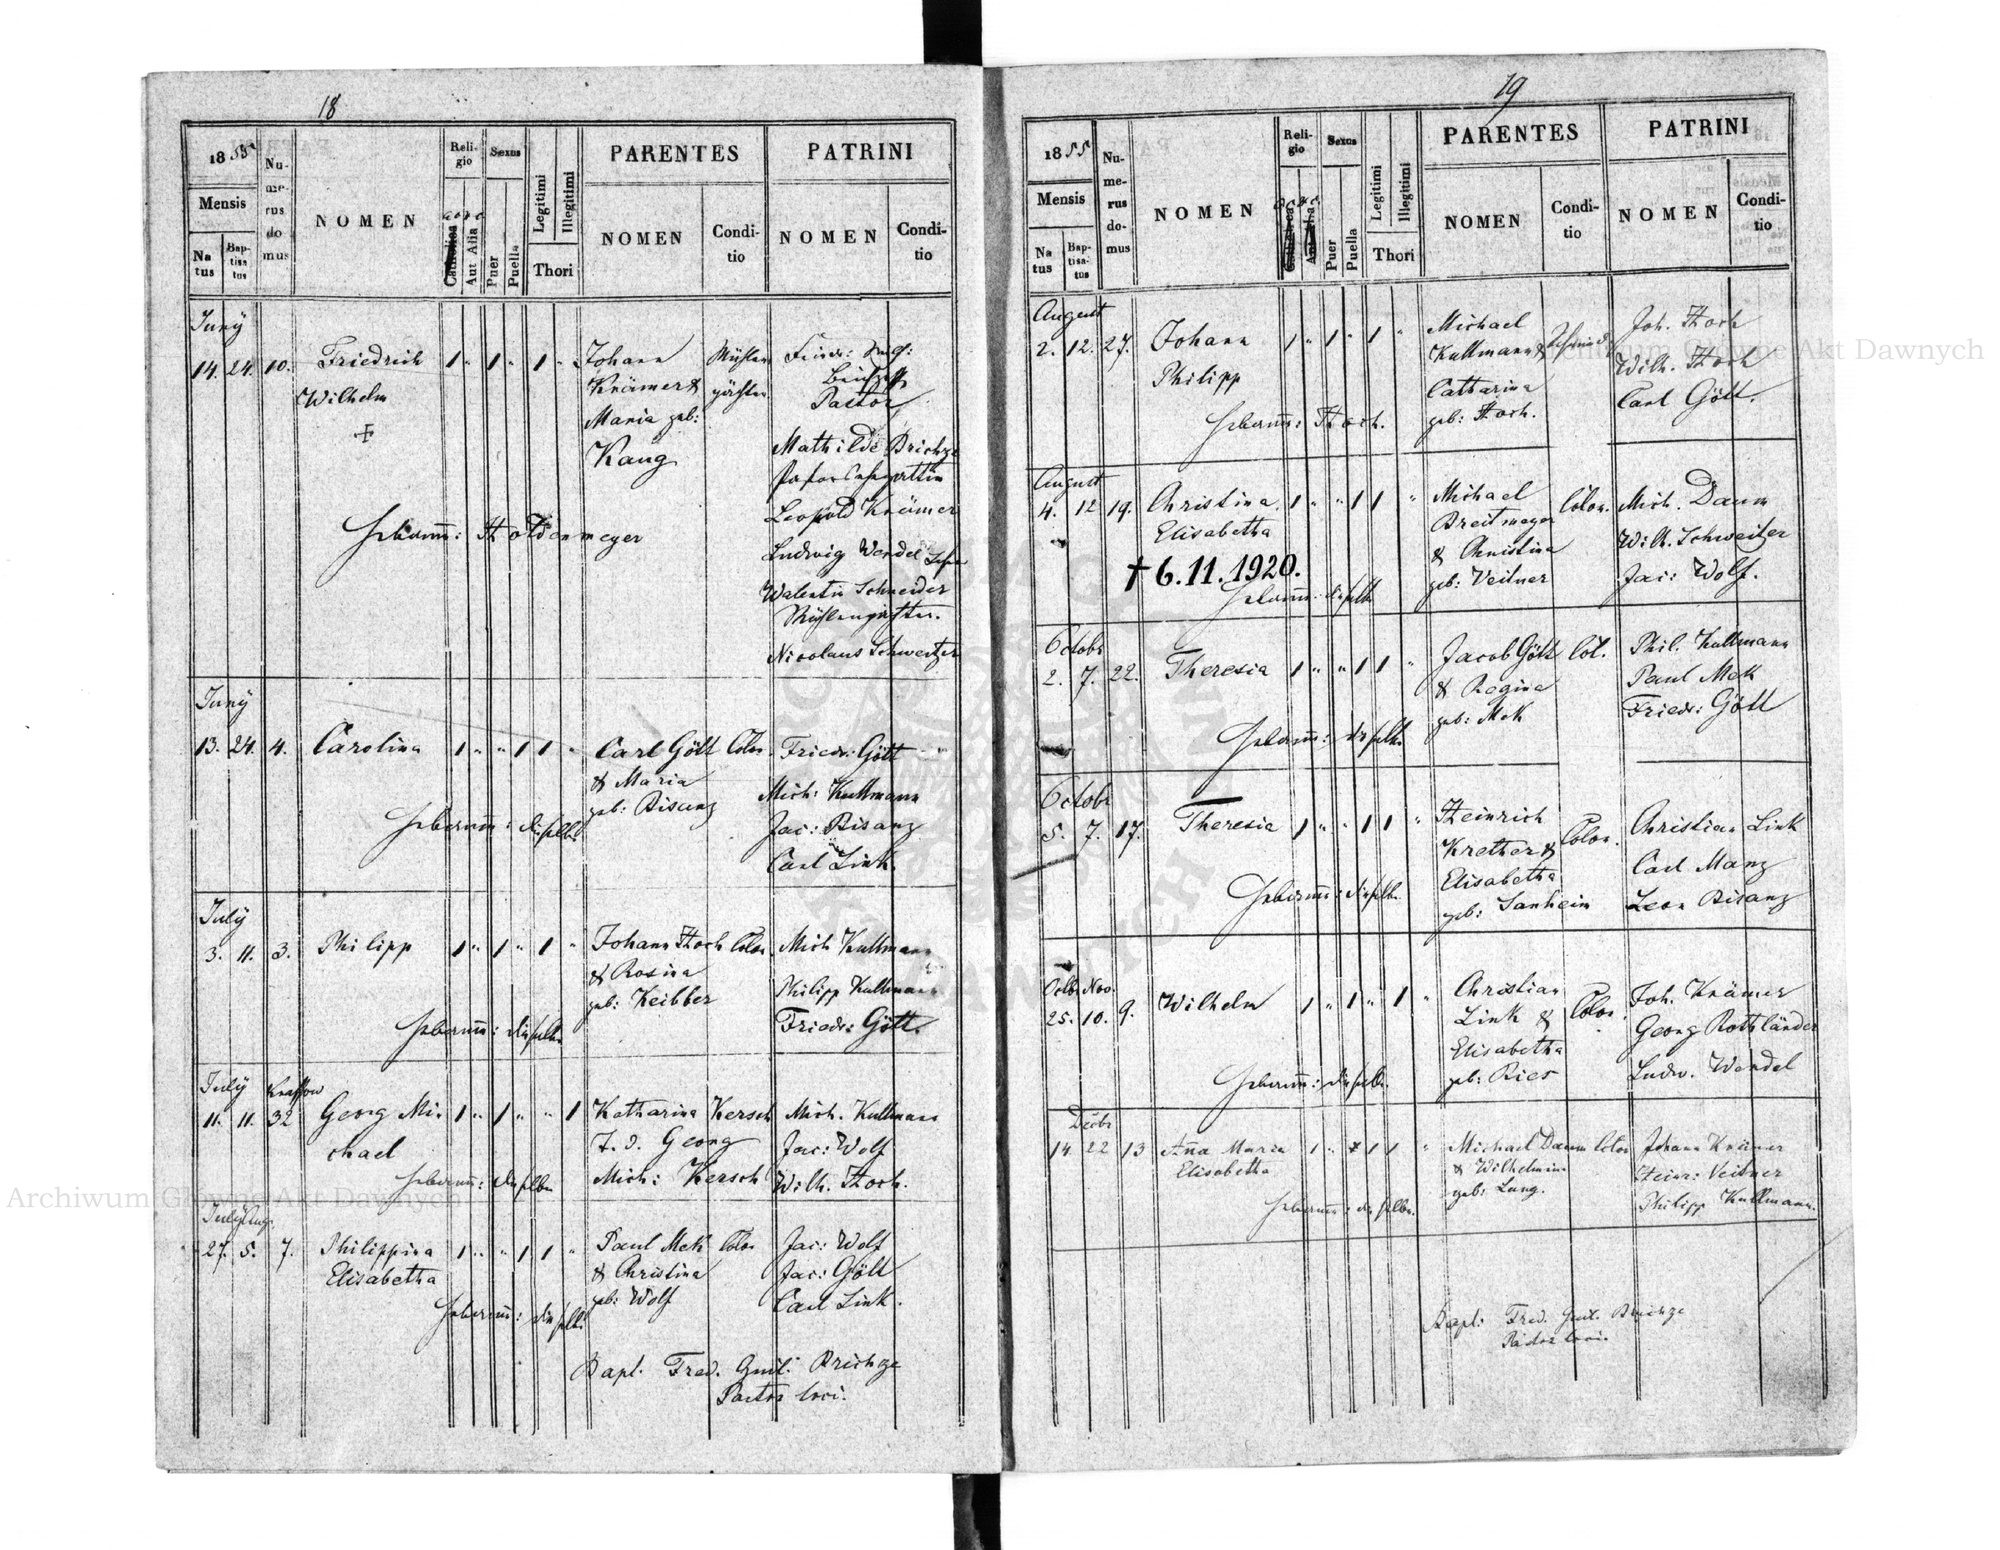 18
18 55
Mensis
Na tus
Bap- tisa tus
Nu- me- rus do mus
NOMEN
Reli- gio
Aut Alia
Sexus
Puer
Puella
Legitimi
Illegitimi
Thori
PARENTES
NOMEN
Condi- tio
PATRINI
NOMEN
Condi- tio
Juny
14. 24. 10. Friedrich
Wilhelm
Johann
Krämer &
Maria geb:
Kang
Pastor
Mathilde Brichze
Leopold Krämer
Ludwig Wendel
Walentin Schneider
Nicolaus Schweitzer
Hebamm: Holdenmeyer
Juny
13. 24. 4. Carolina
Carl Gött Colon
& Maria
geb: Bisanz
Friedr: Gött
Mich: Kullmann
Jac: Bisanz
Carl Link.
Hebamm: dieselbe
July
3. 11. 3. Philipp
Johann Hoch Colon.
& Rosina
geb: Keibber
Mich Kullmann
Philipp Kullmann
Friedr: Gött.
Hebamm: dieselbe
July
11. 11. 32 Georg Mi-
chael
Katharina Kersch
T. d. Georg
Mich: Kersch
Mich. Kullmann
Jac: Wolf
Wilh. Hoch.
Hebamm: dieselbe
July Aug.
27. 5. 7. Philippina
Elisabetha
Paul Mek Colon
& Christina
geb: Wolf
Jac: Wolf
Jac: Gött
Carl Link.
Hebamm: dieselbe
Bapt. Fred. Guil. Brichze
Pastor loci.
19
18 55
Mensis
Na tus
Bap- tisa- tus
Nu- me- rus do- mus
NOMEN
Reli- gio
Sexus
Puer
Puella
Legitimi
Illegitimi
Thori
PARENTES
NOMEN
Condi- tio
PATRINI
NOMEN
Condi- tio
August
2. 12. 27. Johann
Philipp
Michael
Kullmann &
Catharina
geb: Hoch.
Joh. Hoch
Wilh. Hoch
Carl Gött.
Hebamm: Hoch.
August
4. 12 19. Christina
Elisabetha
† 6.11.1920.
Michael
Breitmeyer
& Christina
geb: Veitner
Colon.
Mich. Daum
Wilh. Schweitzer
Jac: Wolf.
Hebamm: dieselbe
Octobr
2. 7. 22. Theresia
Jacob Gött Col.
& Regina
geb: Mek
Phil. Kullmann
Paul Mek
Friedr: Gött
Hebamm: dieselbe
Octobr
5. 7. 17. Theresia
Heinrich
Krether &
Elisabetha
geb: Sanheim
Colon.
Christian Link
Carl Manz
Leon Bisanz
Hebamm: dieselbe
Octb. Nov.
25. 10. 9. Wilhelm
Christian
Link &
Elisabetha
geb: Ries
Colon.
Joh. Krämer
Georg Rothländer
Ludw. Wendel
Hebamm: dieselbe
Decbr
14 22 13 Anna Maria
Elisabetha
Michael Daum Colon
& Wilhelmina
geb: Lang.
Johann Krämer
Heinr: Veitner
Philipp Kullmann.
Hebamm: dieselbe.
Bapt: Fred. Guil. Brichze
Pastor loci.
Archiwum Główne Akt Dawnych
Archiwum Główne Akt Dawnych